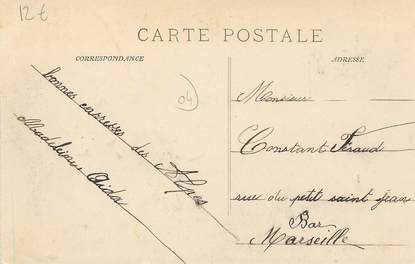 12€
CARTE POSTALE
CORRESPONDANCE
ADRESSE
04
bonnes caresses des Alpes
Monsieur
Constant Féraud
rue du petit saint Jean
Bar
Marseille